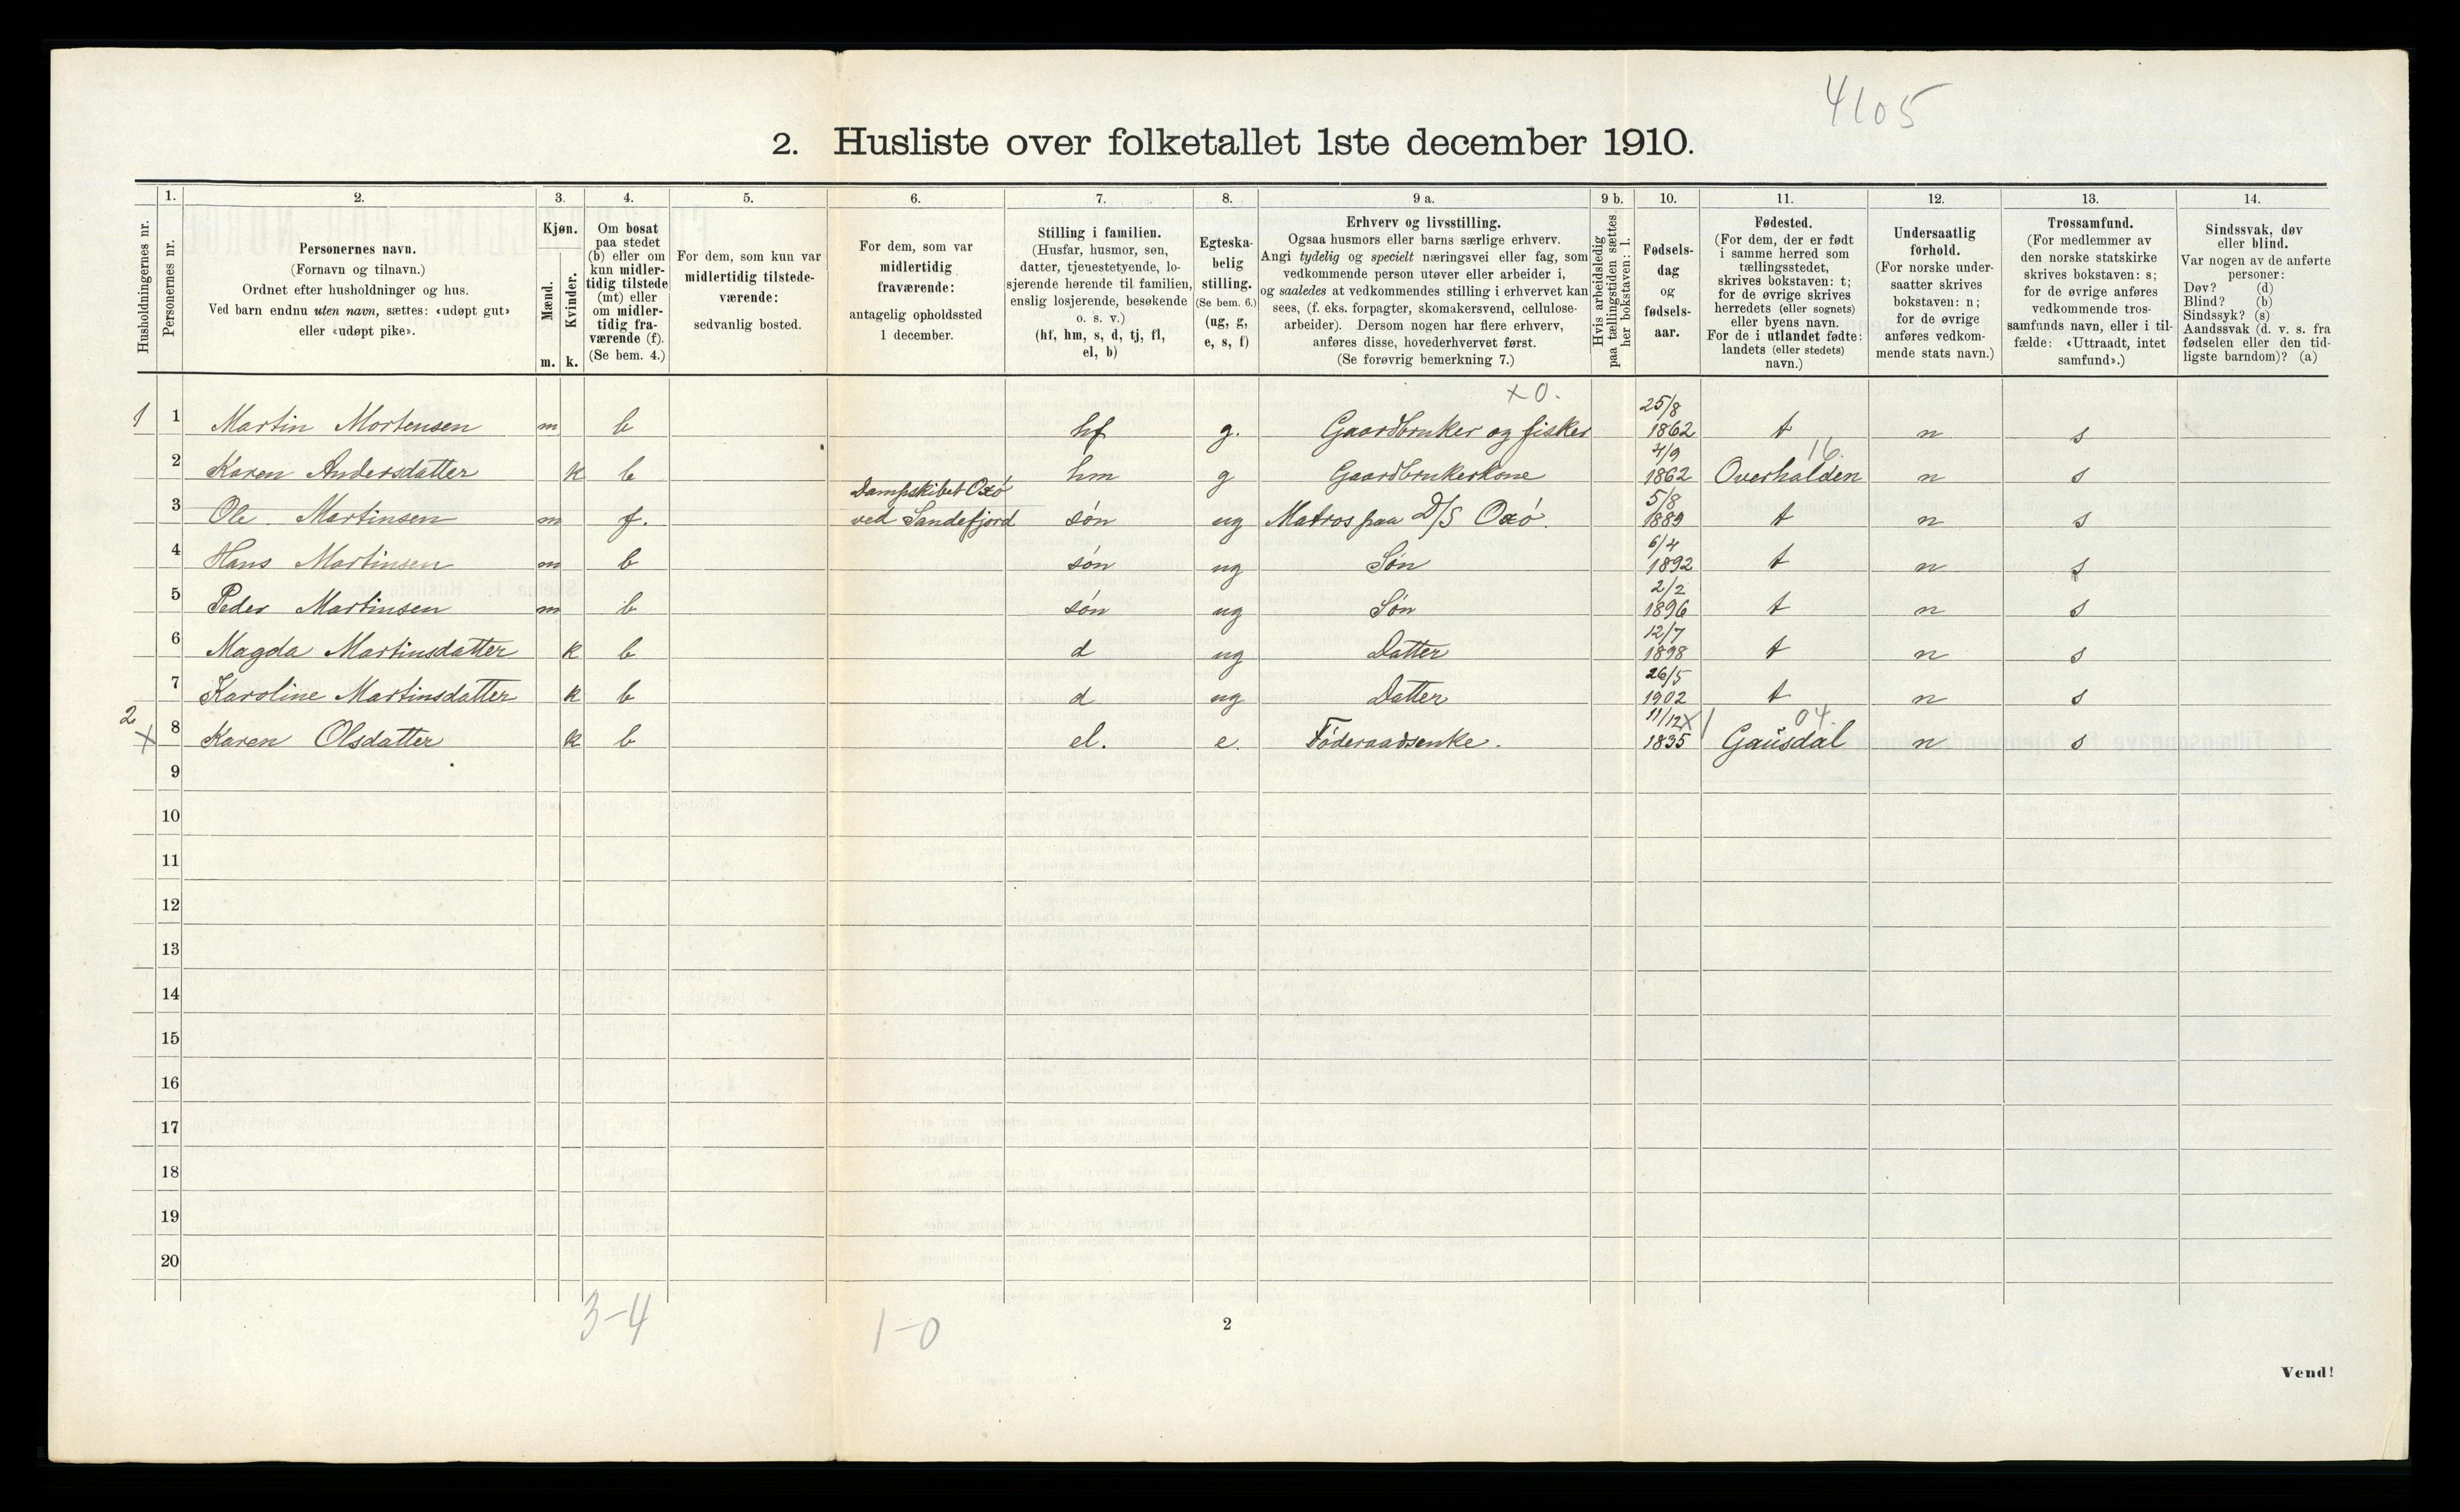 4105
2. Husliste over folketallet 1ste december 1910.
Husholdningernes nr.
1.
Personernes nr.
2.
Personernes navn.
(Fornavn og tilnavn.)
Ordnet efter husholdninger og hus.
Ved barn endnu uten navn, sættes: «udøpt gut»
eller «udøpt pike».
3.
Kjøn.
Mænd.
Kvinder.
m. k.
4.
Om bosat
paa stedet
(b) eller om
kun midler-
tidig tilstede
(mt) eller
om midler-
tidig fra-
værende (f).
(Se bem. 4.)
5.
For dem, som kun var
midlertidig tilstede-
værende:
sedvanlig bosted.
6.
For dem, som var
midlertidig
fraværende:
antagelig opholdssted
1 december.
7.
Stilling i familien.
(Husfar, husmor, søn,
datter, tjenestetyende, lo-
sjerende hørende til familien,
enslig losjerende, besøkende
o. s. v.)
(hf, hm, s, d, tj, fl,
el, b)
8.
Egteska-
belig
stilling.
(Se bem. 6.)
(ug, g,
e, s, f)
9 a.
Erhverv og livsstilling.
Ogsaa husmors eller barns særlige erhverv.
Angi tydelig og specielt næringsvei eller fag, som
vedkommende person utøver eller arbeider i,
og saaledes at vedkommendes stilling i erhvervet kan
sees, (f. eks. forpagter, skomakersvend, cellulose-
arbeider). Dersom nogen har flere erhverv,
anføres disse, hovederhvervet først.
(Se forøvrig bemerkning 7.)
9 b.
Hvis arbeidsledig
paa tællingstiden sættes
her bokstaven: l.
10.
Fødsels-
dag
og
fødsels-
aar.
11.
Fødested.
(For dem, der er født
i samme herred som
tællingsstedet,
skrives bokstaven: t;
for de øvrige skrives
herredets (eller sognets)
eller byens navn.
For de i utlandet fødte:
landets (eller stedets)
navn.)
12.
Undersaatlig
forhold.
(For norske under-
saatter skrives
bokstaven: n;
for de øvrige
anføres vedkom-
mende stats navn.)
13.
Trossamfund.
(For medlemmer av
den norske statskirke
skrives bokstaven: s;
for de øvrige anføres
vedkommende tros-
samfunds navn, eller i til-
fælde: «Uttraadt, intet
samfund».)
14.
Sindssvak, døv
eller blind.
Var nogen av de anførte
personer:
Døv? (d)
Blind? (b)
Sindssyk? (s)
Aandssvak (d. v. s. fra
fødselen eller den tid-
ligste barndom)? (a)
x 0.
1 1 Martin Mortensen m b hf g. Gaardbruker og fisker 25/8 1862 t n s
16
2 Karen Andersdatter k b hm g Gaardbrukerkone 4/9 1862 Overhalden n s
3 Ole Martinsen m f. Dampskibet Oxö ved Sandefjord søn ug Matros paa D/S Oxö. 5/8 1889 t n s
4 Hans Martinsen m b søn ug Søn 6/4 1892 t n s
5 Peder Martinsen m b søn ug Søn 2/2 1896 t n s
6 Magda Martinsdatter k b d ug Datter 12/7 1898 t n s
7 Karoline Martinsdatter k b d ug Datter 26/5 1902 t n s
04
2 x 8 Karen Olsdatter k b el. e. Føderaadsenke. 11/12 x 1835 Gausdal n s
9
10
11
12
13
14
15
16
17
18
19
20
3-4
1-0
2
Vend!